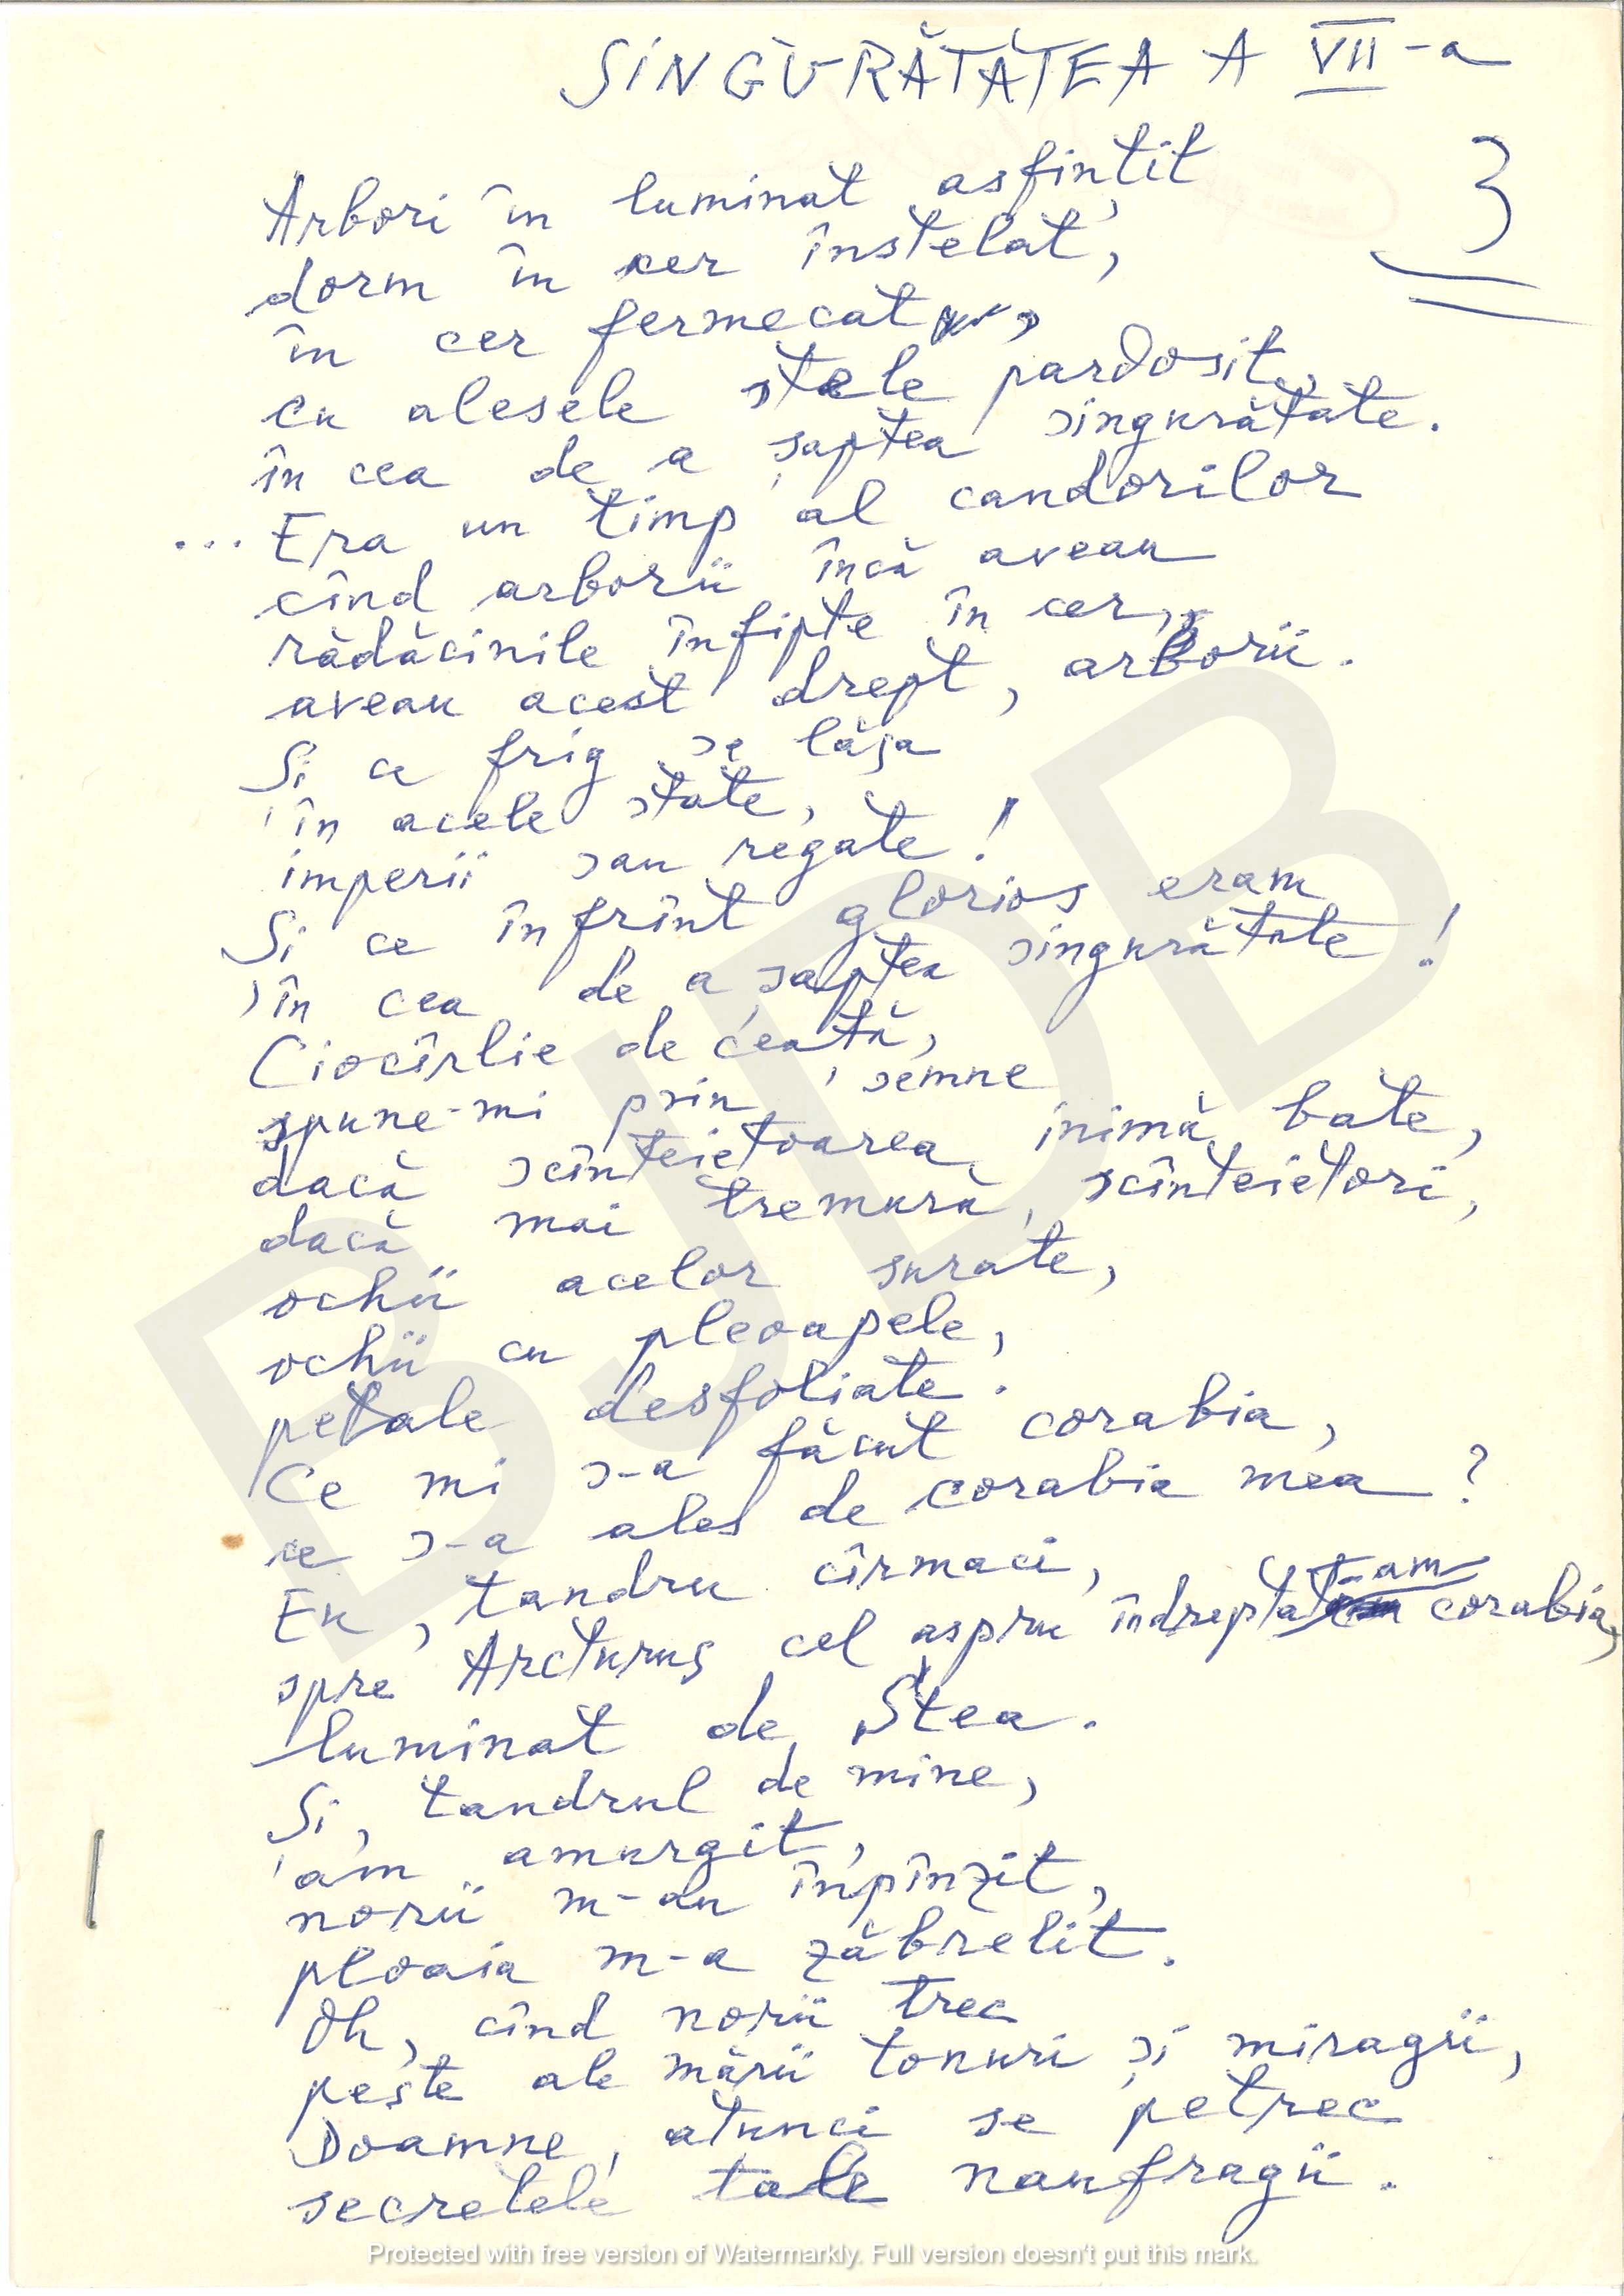 SINGURĂTATEA A VII-a
3
Arbori în luminat asfințit
dorm în cer înstelat,
în cer fermecat,
cu alesele stele pardosit,
în cea de a șaptea singurătate.
... Era un timp al candorilor
cînd arborii încă aveau
rădăcinile înfipte în cer,
aveau acest drept, arborii.
Și ce frig se lăsa
în acele state,
imperii sau regate!
Și ce înfrînt glorios eram
în cea de a șaptea singurătate!
Ciocîrlie de ceață,
spune-mi prin semne
dacă scînteietoarea inimă bate,
dacă mai tremură, scînteietori,
ochii acelor surate,
ochii cu pleoapele,
petale desfoliate.
Ce mi s-a făcut corabia,
ce s-a ales de corabia mea?
Eu, tandru cîrmaci,
spre Arcturus cel aspru îndreptat-am corabia,
luminat de Stea.
Și, tandrul de mine,
am amurgit,
norii m-au înpînzit,
ploaia m-a zăbrelit.
Oh, cînd norii trec
peste ale mării tonuri și miragii,
Doamne, atunci se petrec
secretele tale naufragii.
BJDB
Protected with free version of Watermarkly. Full version doesn't put this mark.